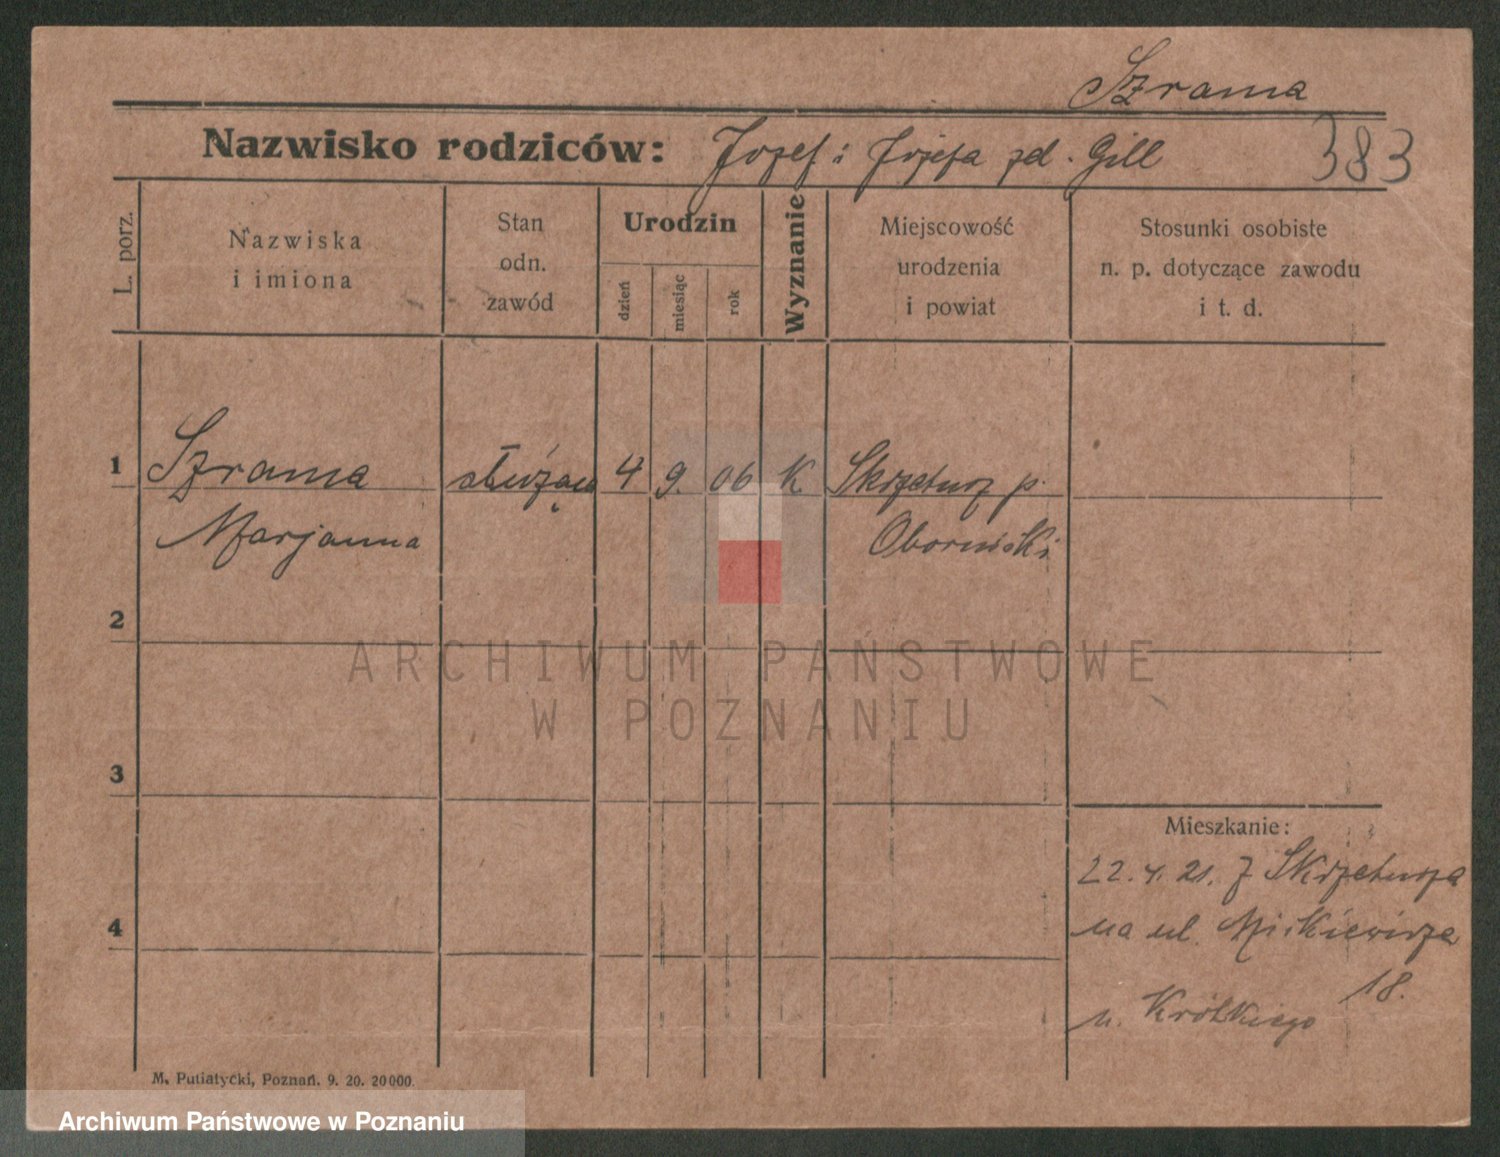 Szrama
Nazwisko rodziców: Jozef i Jozefa zd. Gill 383
L. porz.
Nazwiska
i imiona
Stan
odn.
zawód
Urodzin
dzień
miesiąc
rok
Wyznanie
Miejscowość
urodzenia
i powiat
Stosunki osobiste
n. p. dotyczące zawodu
i t. d.
1 Szrama służąca 4 9. 06 K Skrzetusz p.
Marjanna Obornicki
2
ARCHIWUM PAŃSTWOWE
W POZNANIU
3
Mieszkanie:
22.4.21. z Skrzetusza
4 na ul. Mickiewicza
18.
u. Krótkiego
M. Putiatycki, Poznań. 9. 20. 20000.
Archiwum Państwowe w Poznaniu